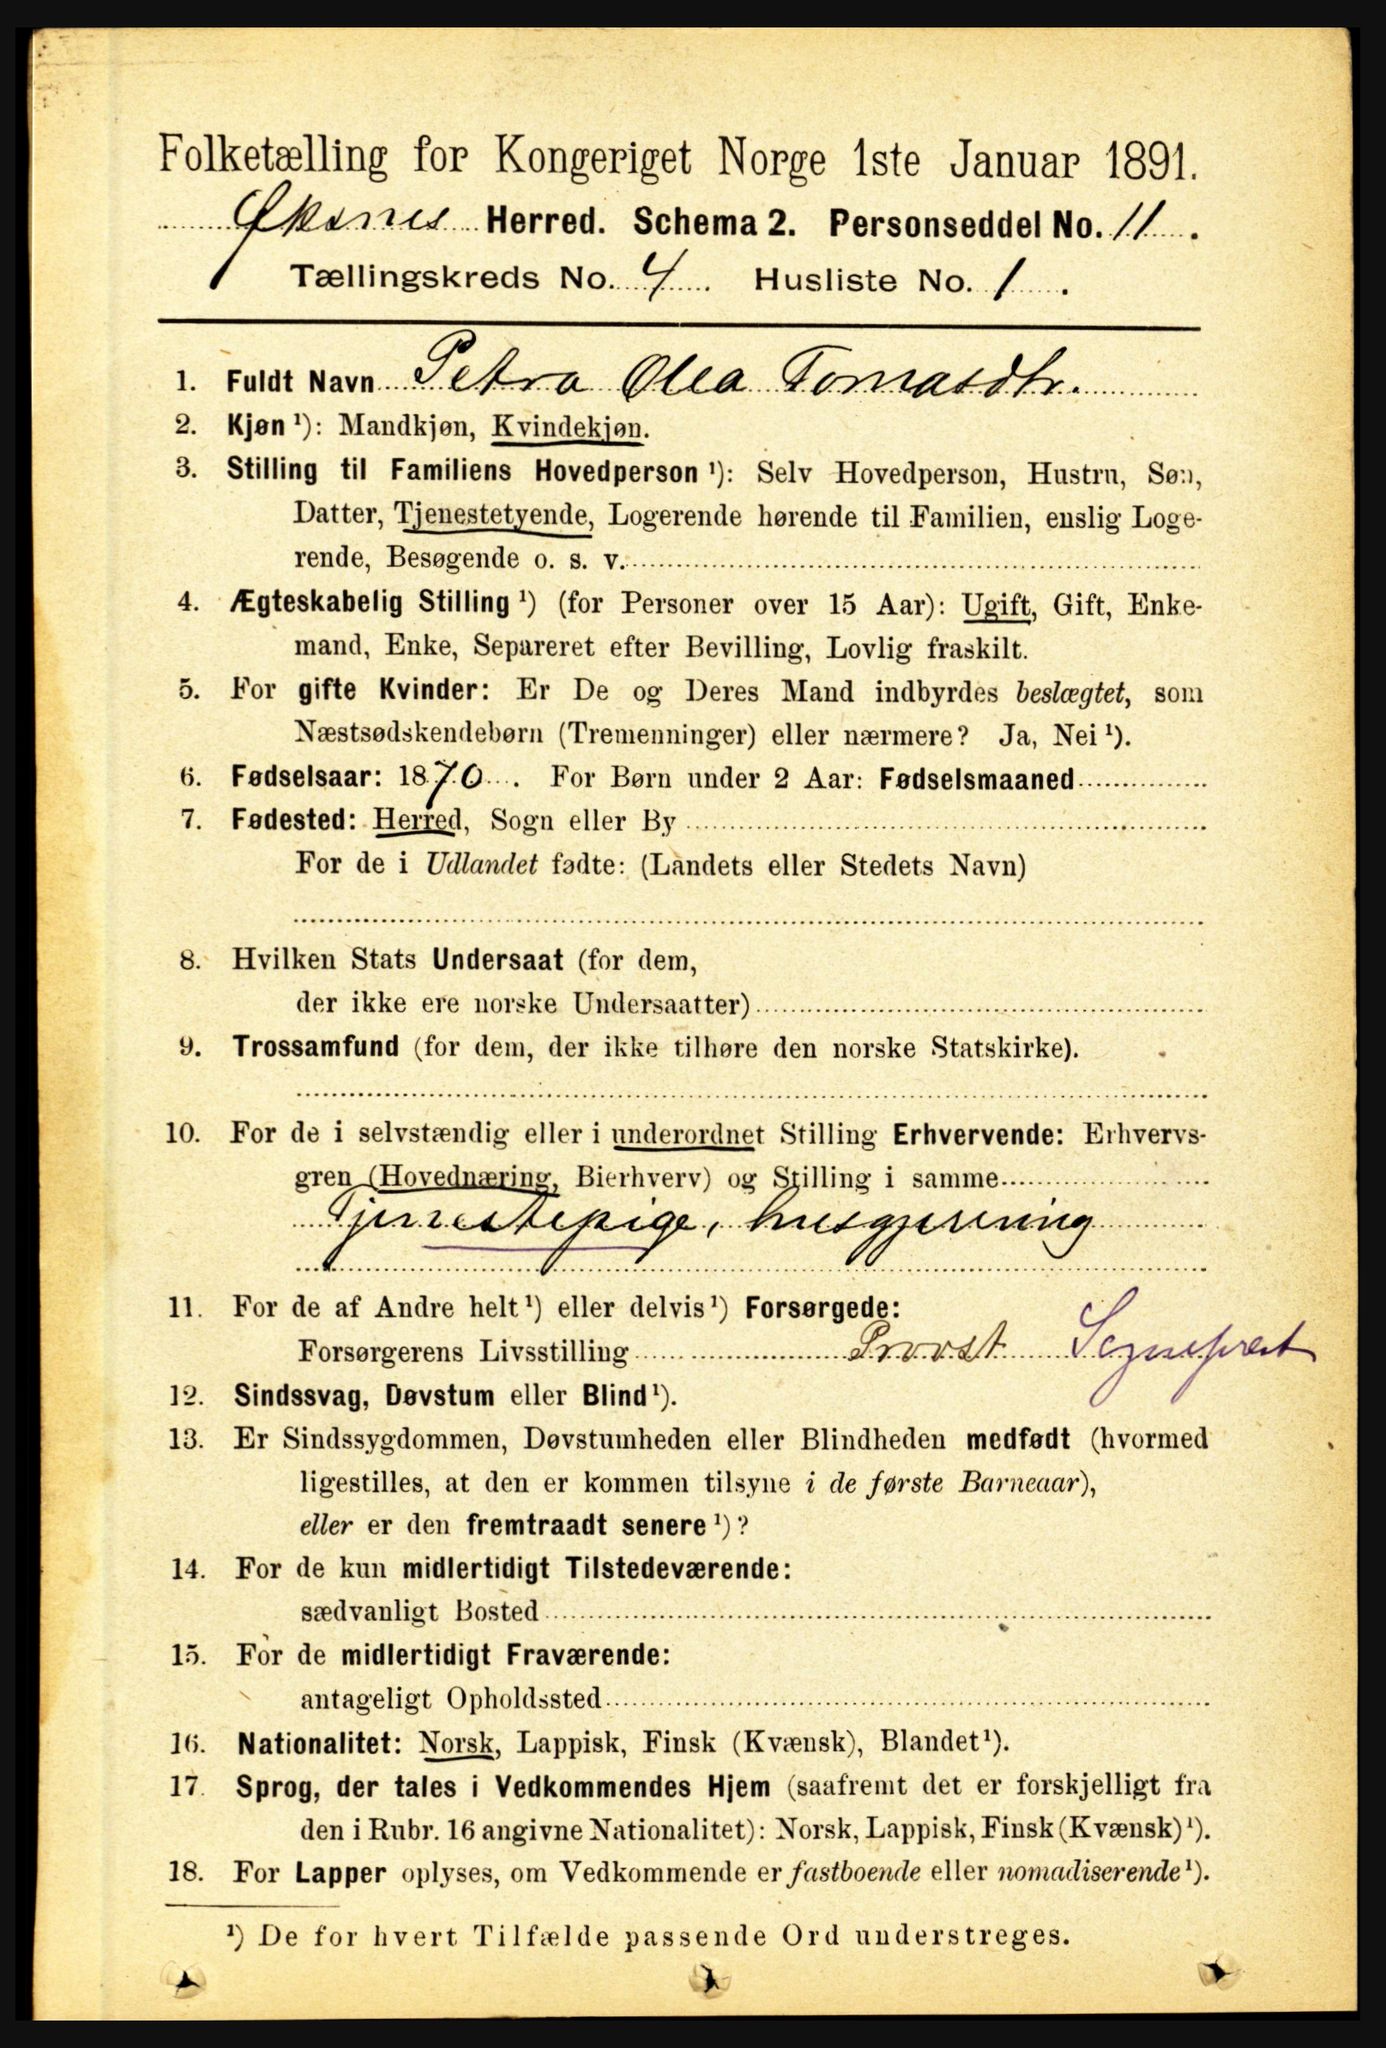 Folketælling for Kongeriget Norge 1ste Januar 1891.
Øksnes Herred. Schema 2. Personseddel No. 11.
Tællingskreds No. 4. Husliste No. 1.
1. Fuldt Navn Petra Olea Tomasdtr.
2. Kjøn ¹): Mandkjøn, Kvindekjøn.
3. Stilling til Familiens Hovedperson ¹): Selv Hovedperson, Hustru, Søn,
Datter, Tjenestetyende, Logerende hørende til Familien, enslig Loge-
rende, Besøgende o. s. v.
4. Ægteskabelig Stilling ¹) (for Personer over 15 Aar): Ugift, Gift, Enke-
mand, Enke, Separeret efter Bevilling, Lovlig fraskilt.
5. For gifte Kvinder: Er De og Deres Mand indbyrdes beslægtet, som
Næstsødskendebørn (Tremenninger) eller nærmere? Ja, Nei ¹).
6. Fødselsaar: 1870. For Børn under 2 Aar: Fødselsmaaned
7. Fødested: Herred, Sogn eller By
For de i Udlandet fødte: (Landets eller Stedets Navn)
8. Hvilken Stats Undersaat (for dem,
der ikke ere norske Undersaatter)
9. Trossamfund (for dem, der ikke tilhøre den norske Statskirke).
10. For de i selvstændig eller i underordnet Stilling Erhvervende: Erhvervs-
gren (Hovednæring, Bierhverv) og Stilling i samme
Tjenestepige, husgjerning
11. For de af Andre helt ¹) eller delvis ¹) Forsørgede:
Forsørgerens Livsstilling Provst Sogneprest
12. Sindssvag, Døvstum eller Blind ¹).
13. Er Sindssygdommen, Døvstumheden eller Blindheden medfødt (hvormed
ligestilles, at den er kommen tilsyne i de første Barneaar),
eller er den fremtraadt senere ¹)?
14. For de kun midlertidigt Tilstedeværende:
sædvanligt Bosted
15. For de midlertidigt Fraværende:
antageligt Opholdssted
16. Nationalitet: Norsk, Lappisk, Finsk (Kvænsk), Blandet ¹).
17. Sprog, der tales i Vedkommendes Hjem (saafremt det er forskjelligt fra
den i Rubr. 16 angivne Nationalitet): Norsk, Lappisk, Finsk (Kvænsk) ¹).
18. For Lapper oplyses, om Vedkommende er fastboende eller nomadiserende ¹).
¹) De for hvert Tilfælde passende Ord understreges.